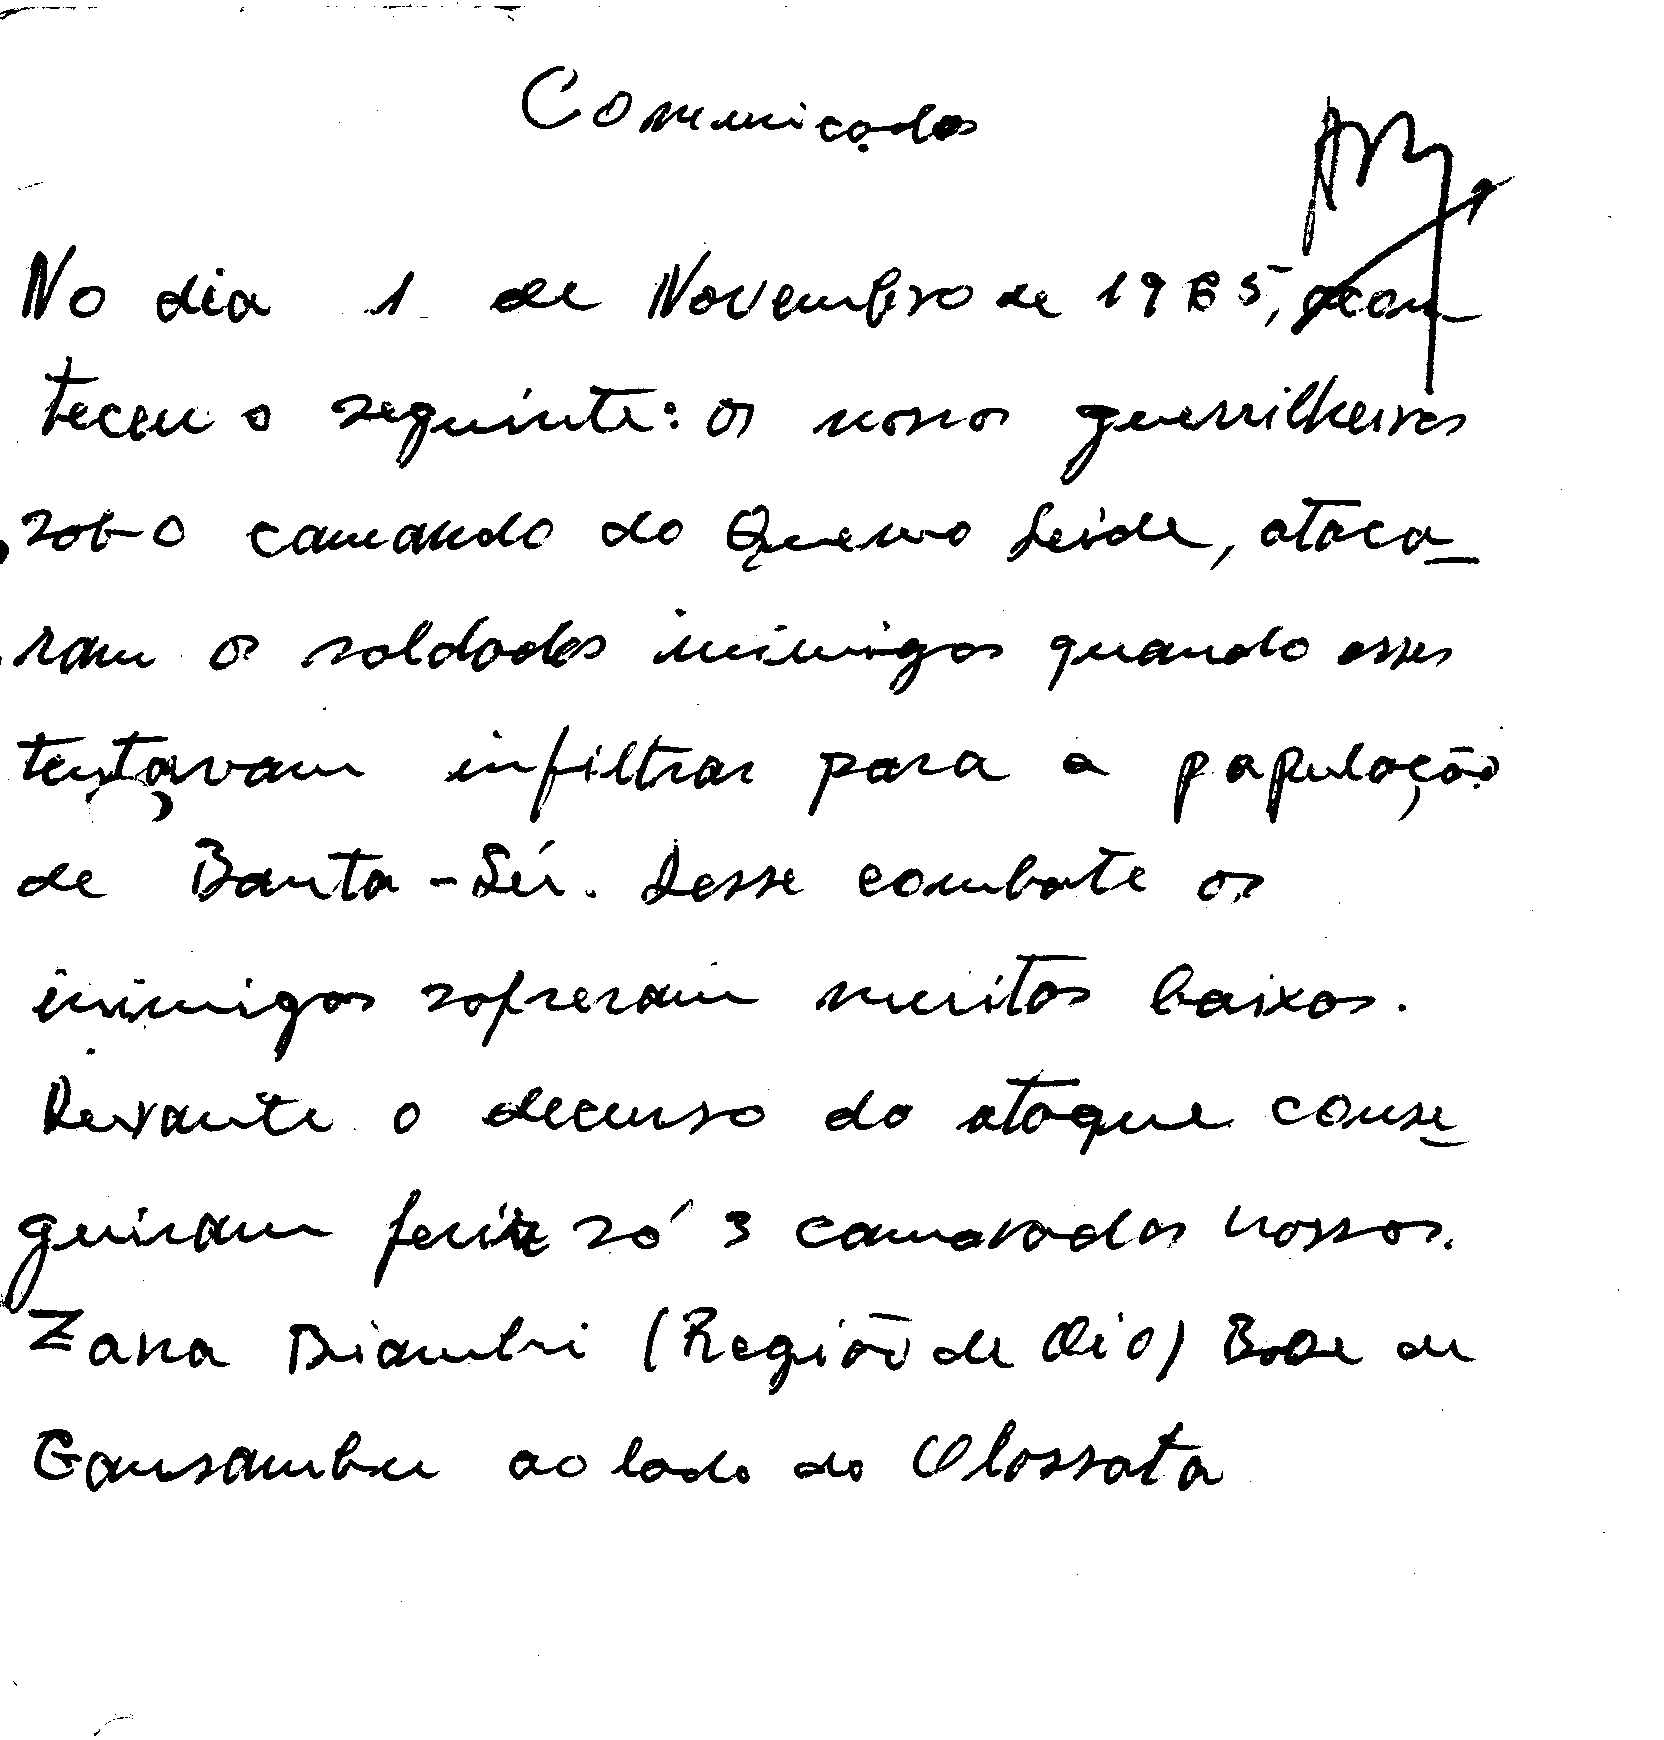 Comunicados
No dia 1 de Novembro de 1965, acon
teceu o seguinte: os nosso guerrilheiros
sob o comando do Quemo Seide, ataca-
ram os soldados inimigos quando esses
tentavam infiltrar para a população
de Banta-Sír. Desse combate os
inimigos sofreram muitas baixas.
Durante o decurso do ataque conse-
guiram ferir só 3 camaradas nossos.
Zona Biambi (Região de Oio) Base de
Gansambu ao lado do Olossato